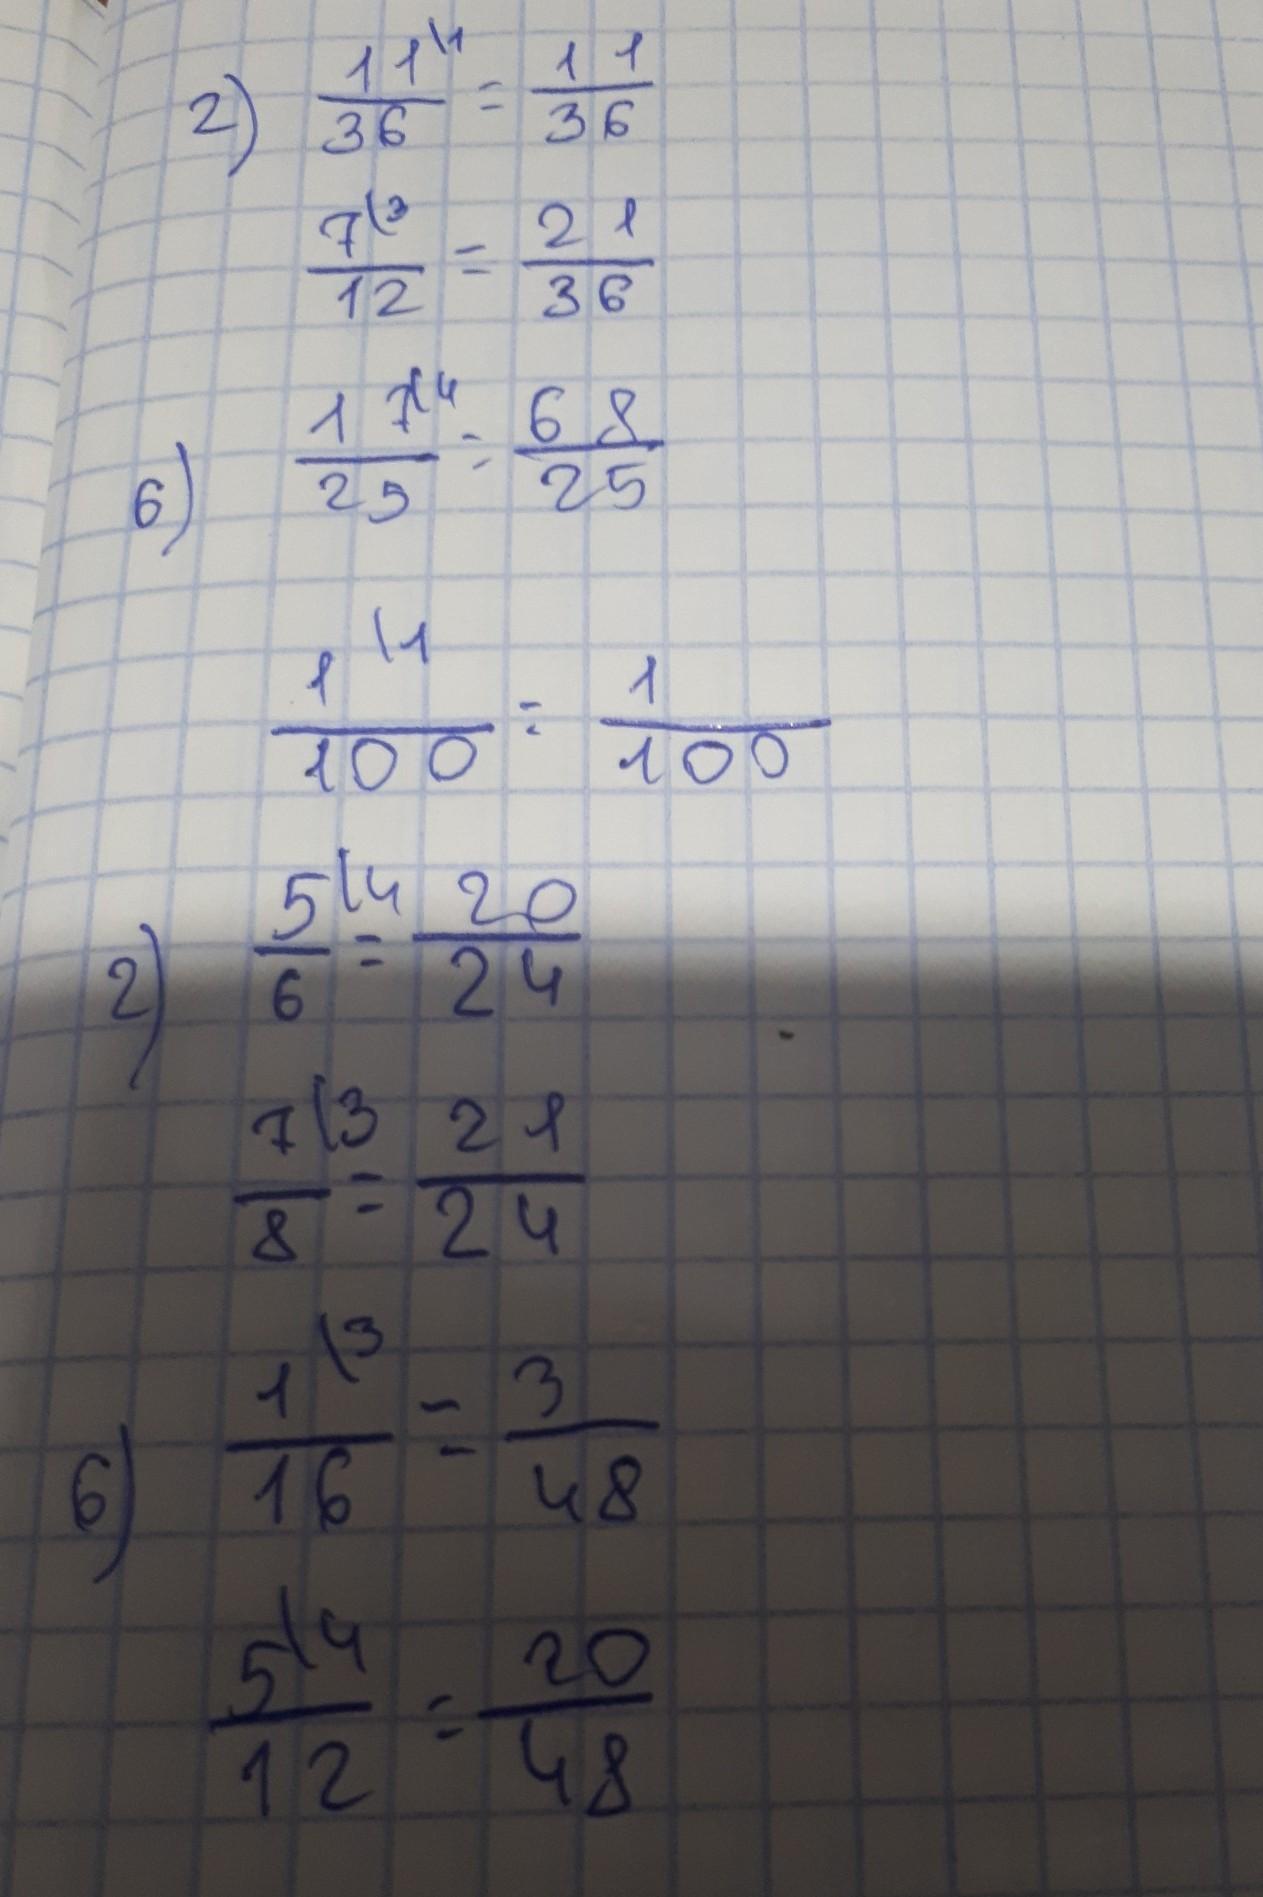 2) 11\1/36 = 11/36
7\3/12 = 21/36
6) 17\4/25 = 68/25
1\1/100 = 1/100
2) 5\4/6 = 20/24
7\3/8 = 21/24
6) 1\3/16 = 3/48
5\4/12 = 20/48